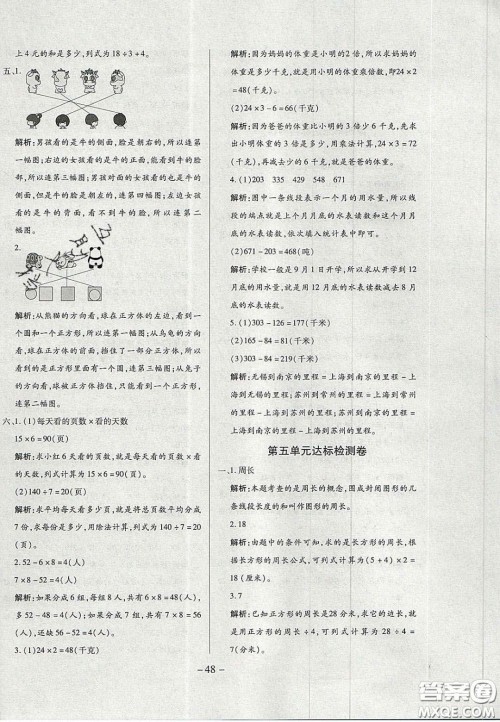 上4元的和是多少,列式为18÷3+4。
五、1.
解析:男孩看的是牛的侧面,脸是朝右的,所以连第
一幅图;右边的女孩看的是牛的侧面,脸是朝左
的,所以连第三幅图;上边男孩看的是能看到牛
的脸,所以连第四幅图;左边女孩
看的是牛的后面,看不到牛的脸,所以连第二
幅图。
2.
解析:从熊猫的方向看,球在正方体的左边,看到一
个圆和一个正方形,所以连第三幅图;从乌龟的方
向看,球在正方体前面,挡住了一部分正方体,所以
连第一幅图;从兔
子的方向看,看不到球,只能看到一个正方形,所以
连第二幅图。
六、1.(1)每天看的页数×看的天数
15×6=90(页)
解析:求小红6天看的页数,就用每天看的页数×看
的天数,列式计算15×6=90(页)。
(2)140÷7=20(页)
解析:求每份是多少页,就是将总页数平均分成
7份,求每份是多少,用除法计算,列式140÷7=20
(页)。
2.52-6×8=4(人)
7×8-52=4(人)
解析:如果分成6组,每组8人,那么就有6×8=48
(人),多52-48=4(人);如果分成7组,有7×8=56
(人),还缺56-52=4(人)。
3.(1)24×2=48(千克)
解析:因为妈妈的体重是小明的2倍,所以求妈妈的
体重是多少千克,就用小明的体重乘倍数,即24×2
=48(千克)。
(2)24×3-6=66(千克)
解析:因为爸爸的体重比小明的3倍少6千克,所以
求出小明体重的3倍是多少千克,即24×3=72
(千克),再减去6千克就是爸爸的体重。
4.(1)203 335 429 548 671
解析:图中一条线段表示一个月的用水量,所以线
段的端点就是上个月月底的水表读数和这个月月
底的水表读数。依次填入统计表中即可。
(2)671-203=468(吨)
解析:学校一般是9月1日开学,所以求开学到12月
底的用水量,就用12月底的水表读数减去8月
底的水表读数。
5.(1)303-126=177(千米)
(2)165-84=81(千米)
(3)303-84=219(千米)
解析:无锡到南京的里程=上海到南京的里程-上
海到无锡的里程;苏州到常州的里程=上海到常州
的里程-上海到苏州的里程;苏州到南京的
里程=上海到南京的里程-上海到苏州的里程。
第五单元达标检测卷
一、1.周长
解析:本题考查的是周长的概念,围成封闭图形的几
条线段长度的和叫作图形的周长。
2.18
解析:由题中的条件可知,求的是长方形的周长,根
据长方形的周长公式,可列式计算(5+4)×2=
18(厘米)。
3.7
解析:已知正方形的周长是28分米,求正方形的边
长,正方形的周长÷4,可列式计算28÷4=
7(分米)。
-48-
答案圈
MXQE.COM